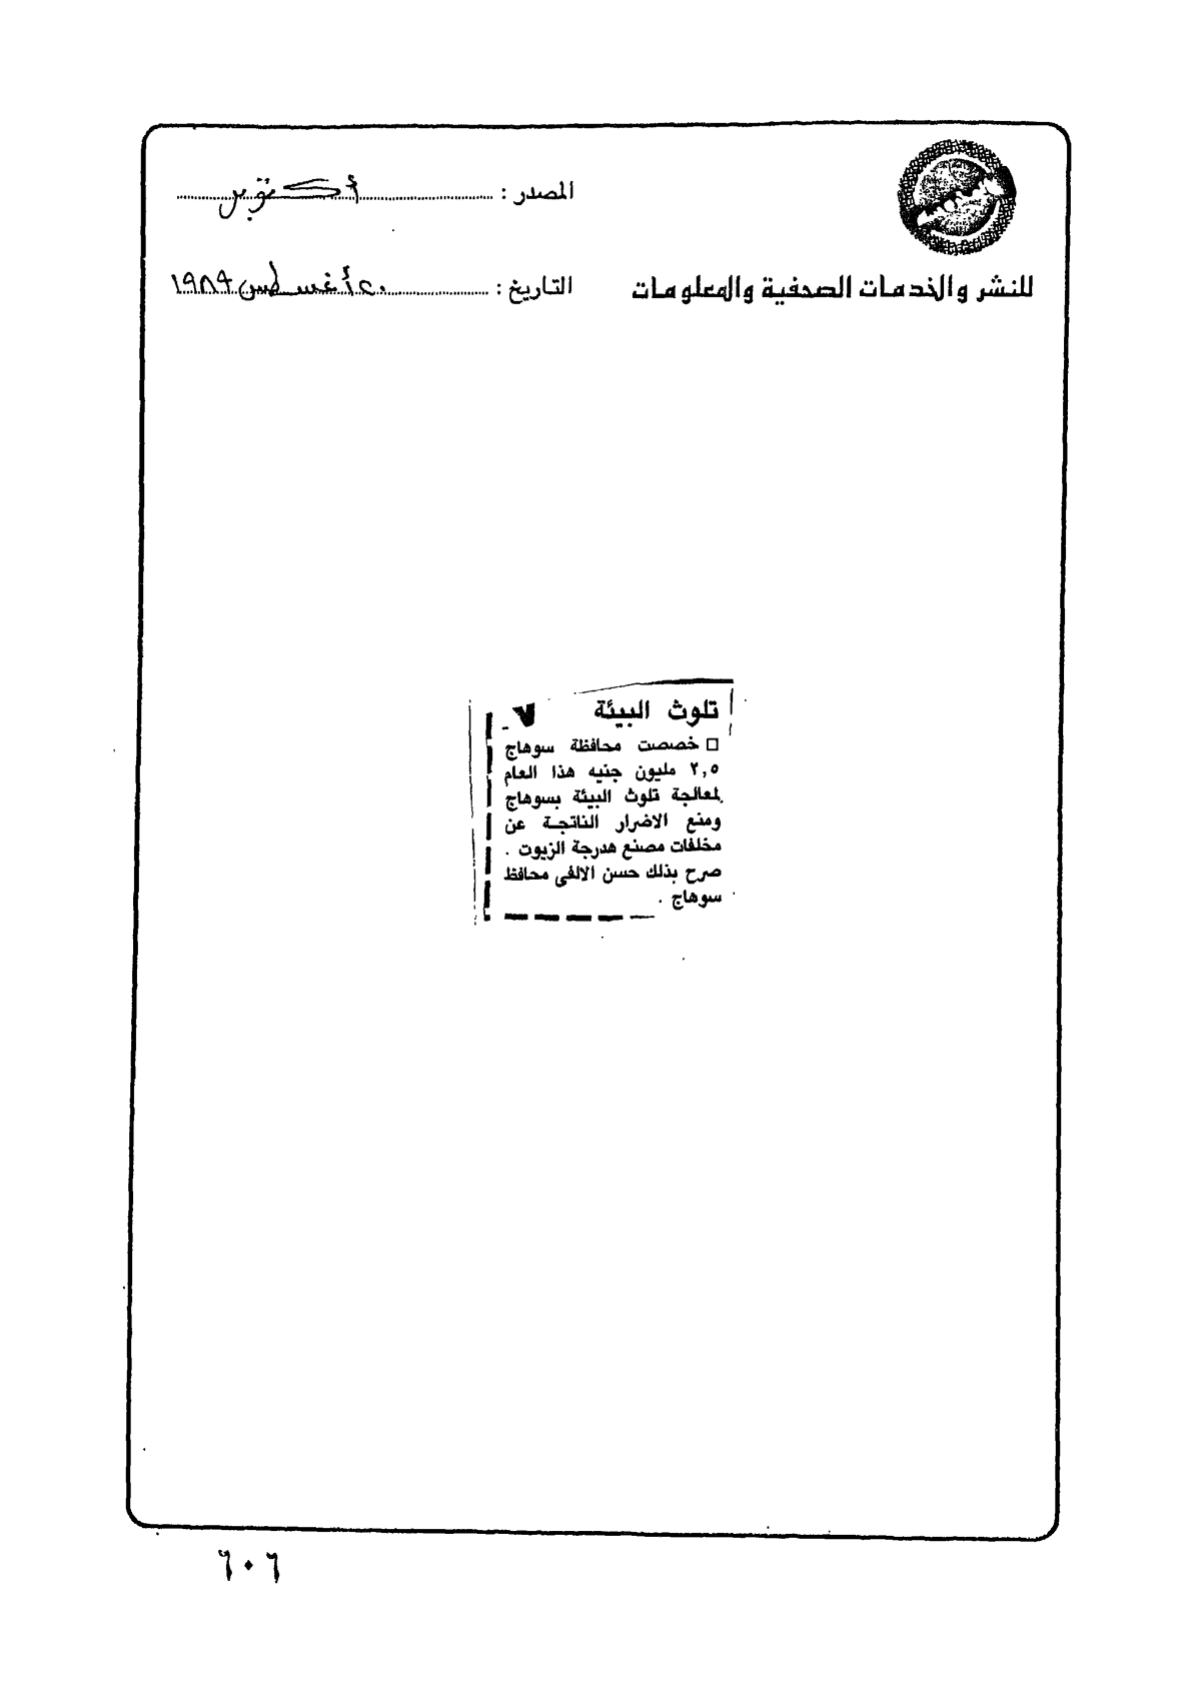 المصدر : أكتوبر
للنشر والخدمات الصحفية والمعلومات
التاريخ : ٢٠ أغسطس ١٩٨٩
تلوث البيئة ٧
□ خصصت محافظة سوهاج
٢,٥ مليون جنيه هذا العام
لمعالجة تلوث البيئة بسوهاج
ومنع الاضرار الناتجة عن
مخلفات مصنع هدرجة الزيوت .
صرح بذلك حسن الالفى محافظ
سوهاج .
٦٠٦